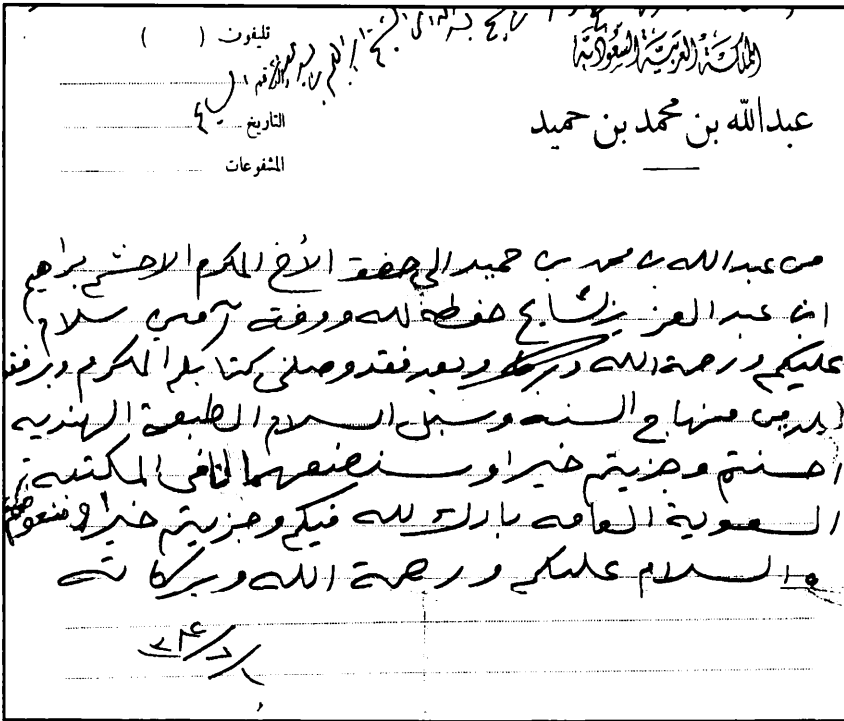 المملكة العربية السعودية
عبدالله بن محمد بن حميد
تليفون ( )
الرقم
التاريخ
المشفوعات
من عبدالله بن محمد بن حميد الى حضرة الأخ المكرم الاحشم براهيم
ابن عبد العزيز الشايع حفظه الله ووفقه آمين سلام
عليكم ورحمة الله وبركاته وبعد فقد وصلني كتابكم المكرم وبرفقه
من منهاج السنه وسبل السلام الطبعة الهنديه
احسنتم وجزيتم خيرا وسنضعهما في المكتبه
السعودية العامه بارك الله فيكم وجزيتم خيرا
والسلام عليكم ورحمة الله وبركاته